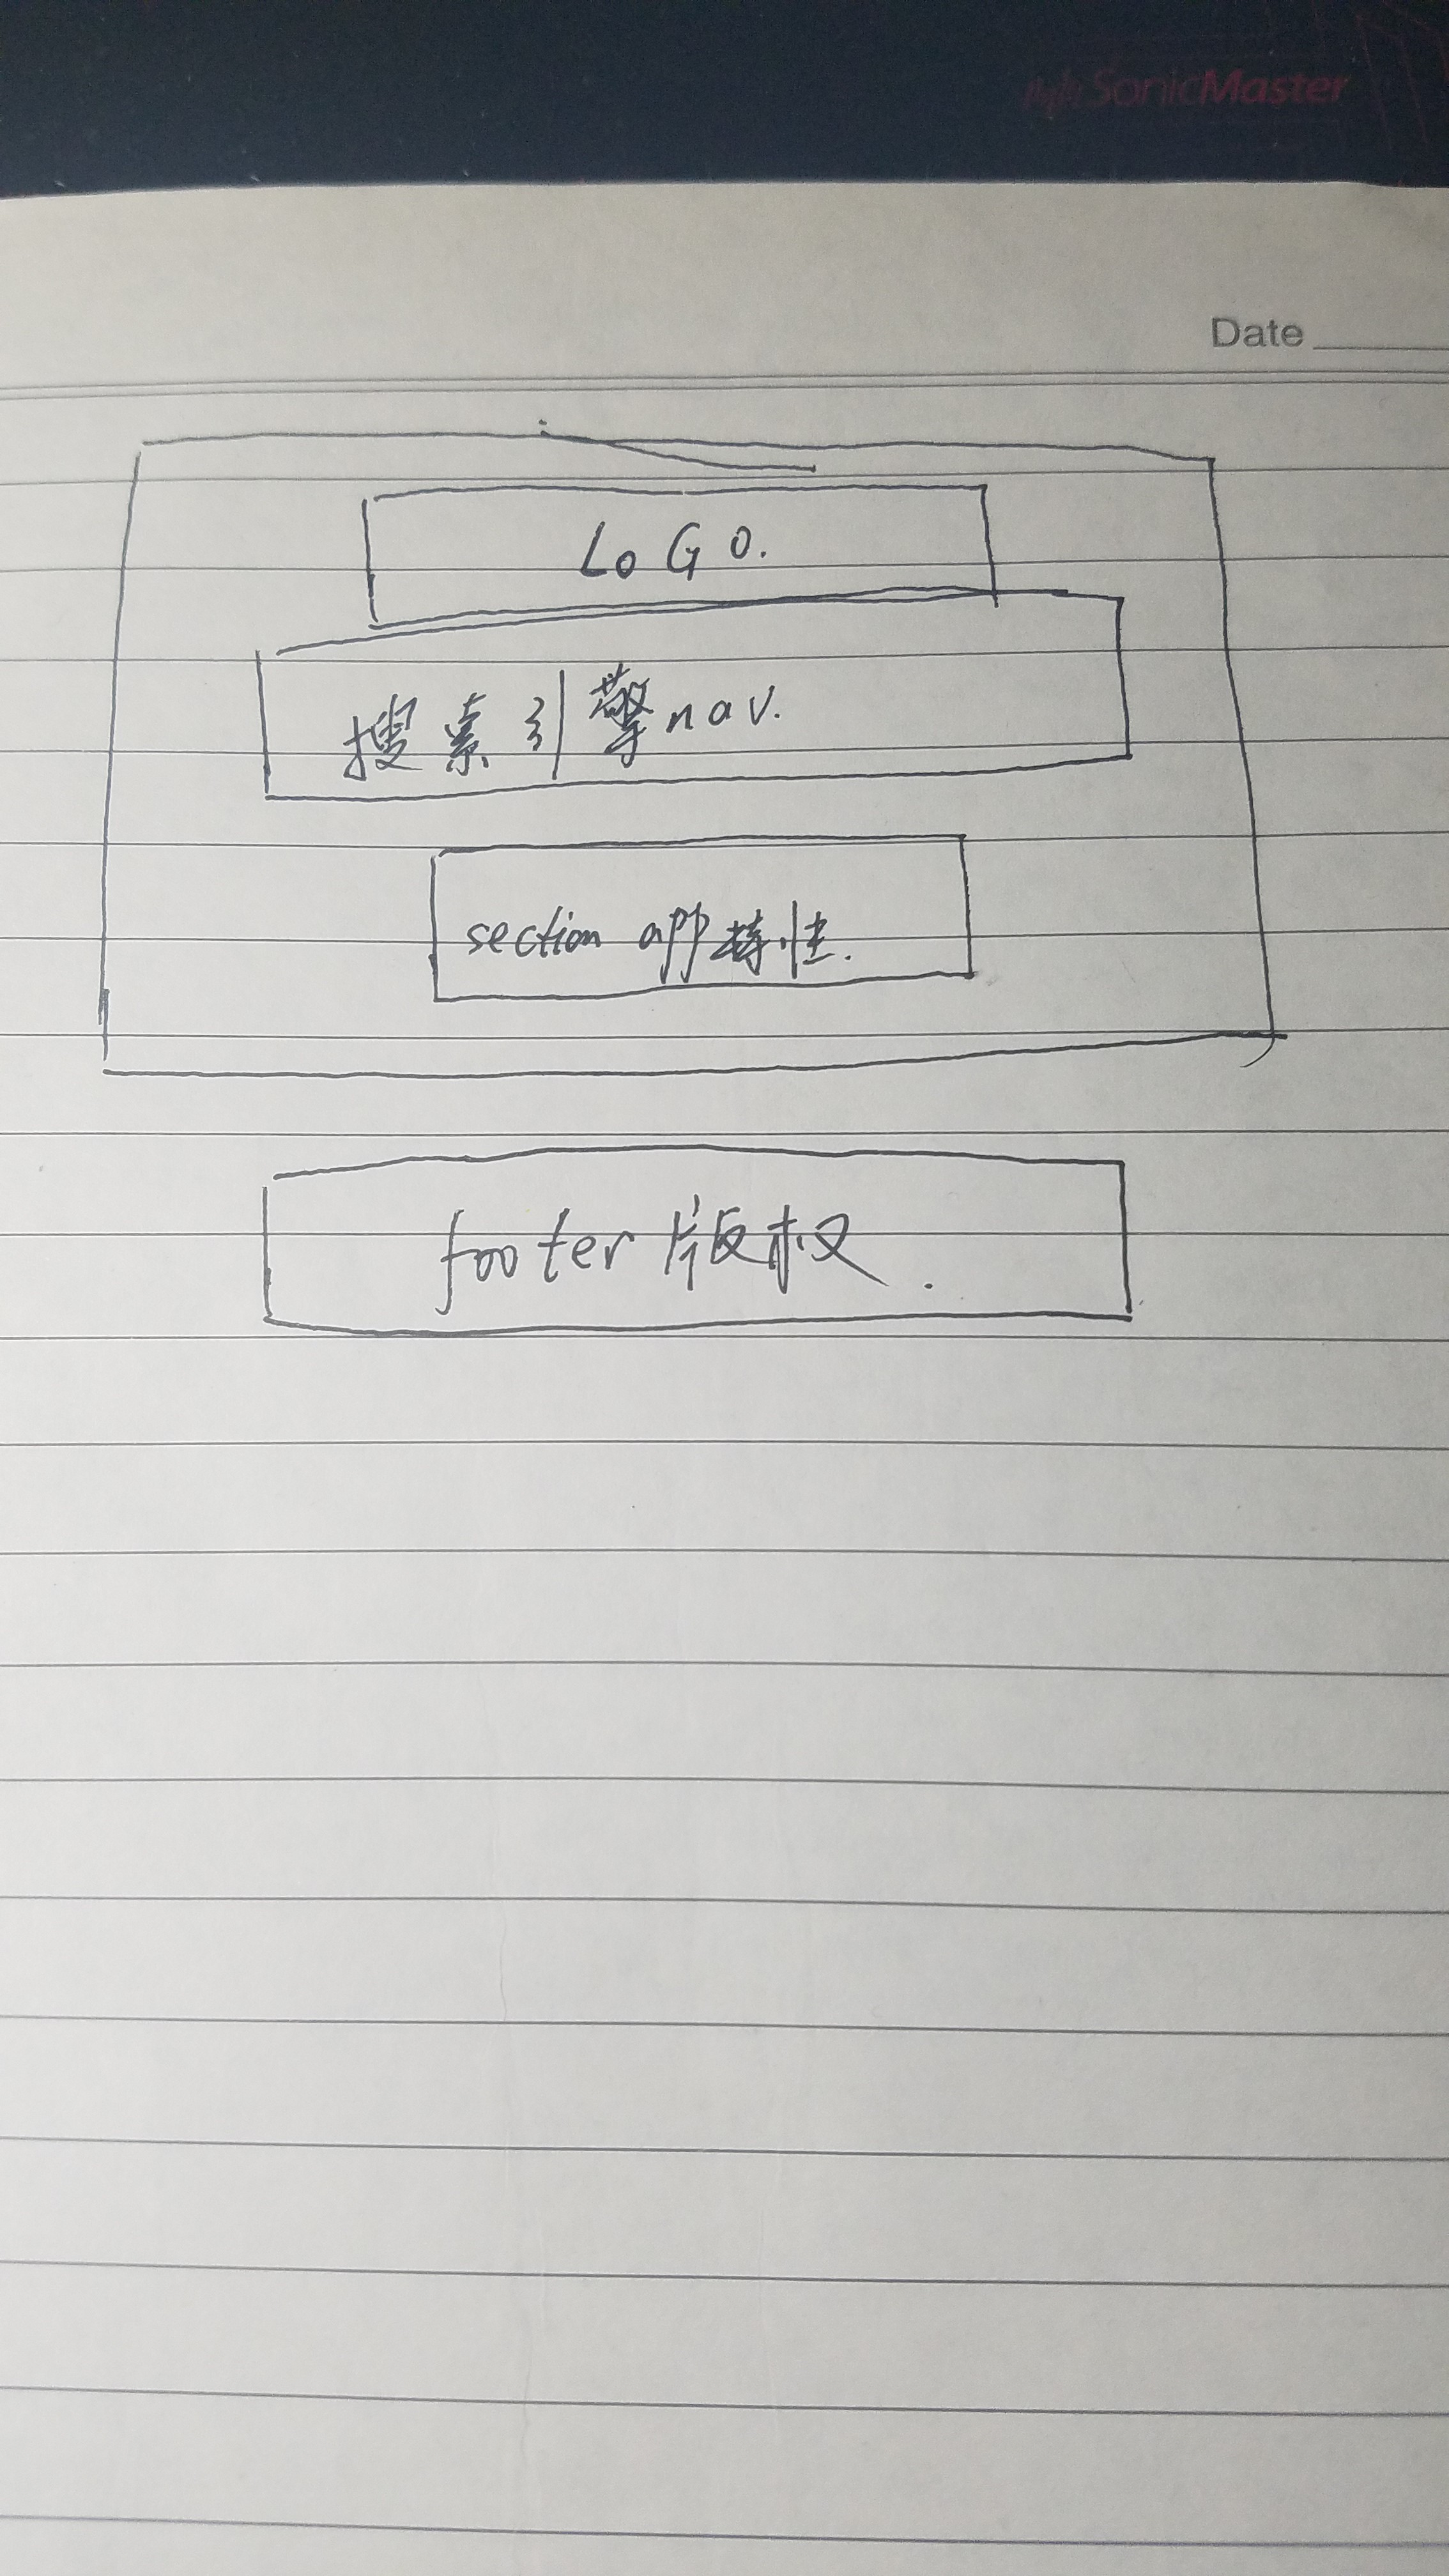 SonicMaster
Date
LoGo.
搜索引擎nav.
section app特性.
footer版权.